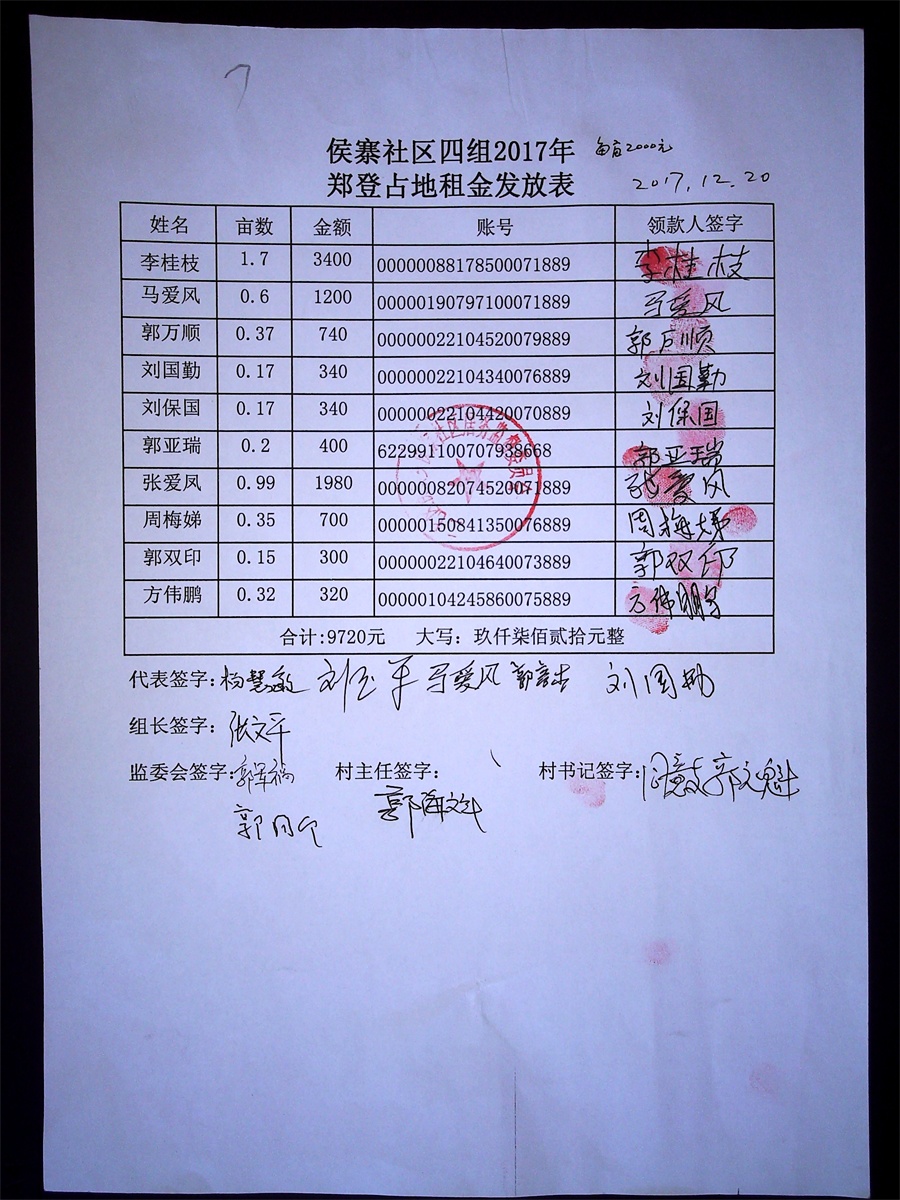 侯寨社区四组2017年 每亩2000元
郑登占地租金发放表 2017.12.20
姓名 亩数 金额 账号 领款人签字
李桂枝 1.7 3400 00000088178500071889 李桂枝
马爱风 0.6 1200 00000190797100071889 马爱风
郭万顺 0.37 740 00000022104520079889 郭万顺
刘国勤 0.17 340 00000022104340076889 刘国勤
刘保国 0.17 340 00000022104420070889 刘保国
郭亚瑞 0.2 400 622991100707938668 郭亚瑞
张爱凤 0.99 1980 00000082074520071889 张爱风
周梅娣 0.35 700 00000150841350076889 周梅娣
郭双印 0.15 300 00000022104640073889 郭双印
方伟鹏 0.32 320 00000104245860075889 方伟鹏
合计:9720元 大写：玖仟柒佰贰拾元整
代表签字: 杨慧敏 马爱风
组长签字: 张文平
监委会签字: 村主任签字: 村书记签字: 郭文魁